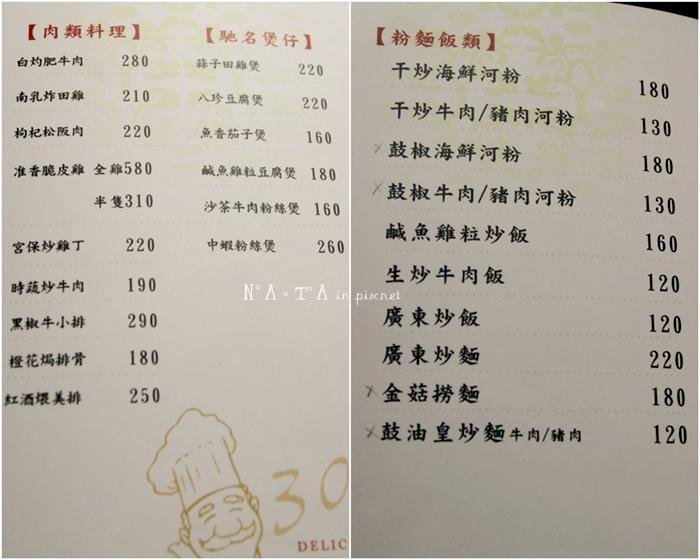 【肉類料理】
白灼肥牛肉 280
南乳炸田雞 210
枸杞松阪肉 220
准香脆皮雞 全雞580
半隻310
宮保炒雞丁 220
時蔬炒牛肉 190
黑椒牛小排 290
橙花焗排骨 180
紅酒煨美排 250
【馳名煲仔】
蒜子田雞煲 220
八珍豆腐煲 220
魚香茄子煲 160
鹹魚雞粒豆腐煲 180
沙茶牛肉粉絲煲 160
中蝦粉絲煲 260
30
DELIC
【粉麵飯類】
干炒海鮮河粉 180
干炒牛肉/豬肉河粉 130
鼓椒海鮮河粉 180
鼓椒牛肉/豬肉河粉 130
鹹魚雞粒炒飯 160
生炒牛肉飯 120
廣東炒飯 120
廣東炒麵 220
金菇撈麵 180
鼓油皇炒麵牛肉/豬肉 120
N°A·T°A in pixnet